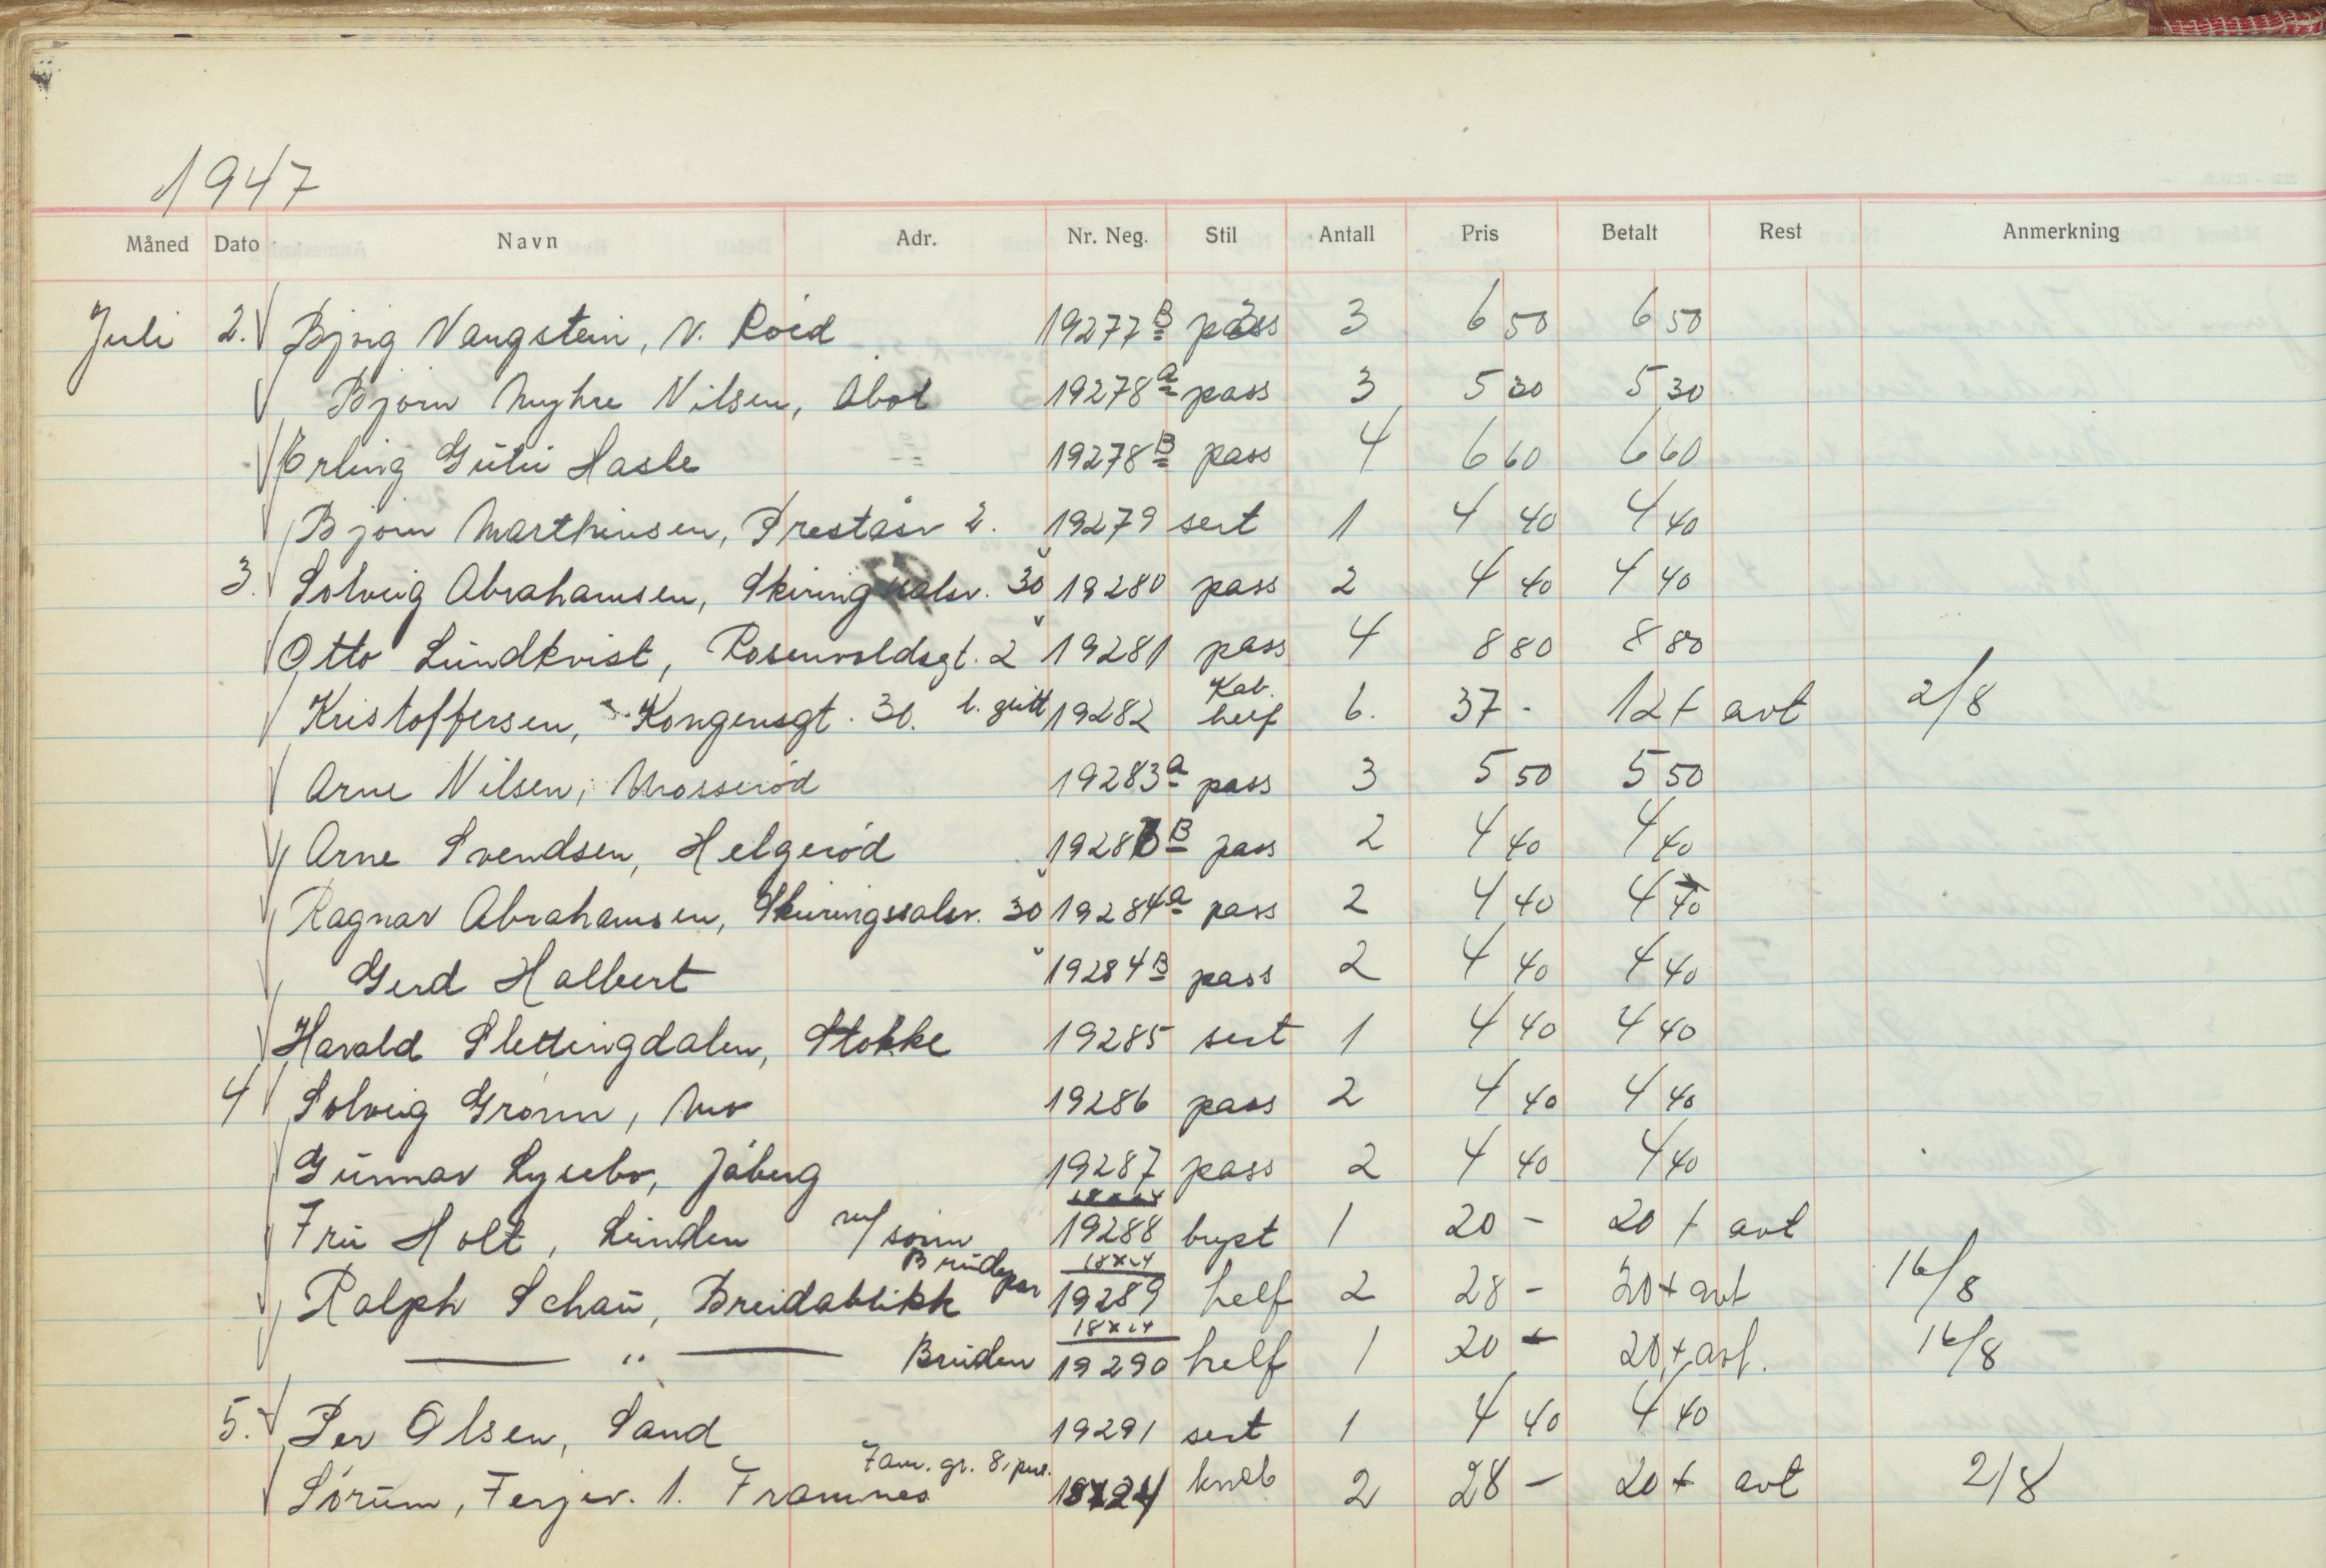 1947
Måned Dato Navn Adr. Nr. Neg. Stil Antall Pris Betalt Rest Anmerkning
Juli 2. Bjørg Vangstein, N. Röed 19277 B pass 3 6 50 6 50
Bjørn Myhre Nilsen, Åbol 19278 a pass 3 5 30 5 30
Erling Gütü Hasle 19278 B pass 4 6 60 6 60
Bjørn Marthinsen, Preståsv 2. 19279 sert 1 4 40 4 40
3. Solveig Abrahamsen, Skiringsalsv. 30 19280 pass 2 4 40 4 40
Otto Lündkvist, Rosenvoldsgt. 2 19281 pass 4 8 80 8 80
Kristoffersen, Kongensgt. 30. l. gütt 19282 Kab. helf 6. 37 - 12 + avt 2/8
Arne Nilsen, Mosserød 19283 a pass 3 5 50 5 50
Arne Svendsen, Helgerød 19283 B pass 2 4 40 4 40
Ragnar Abrahamsen, Skiringssalsv. 30 19284 a pass 2 4 40 4 40
Gerd Halbert 19284 B pass 2 4 40 4 40
Harald Slettingdalen, Stokke 19285 sert 1 4 40 4 40
4 Solveig Grönn, Mo 19286 pass 2 4 40 4 40
Günnar Lysebo, Jåberg 19287 pass 2 4 40 4 40
Frü Holt, Lünden m/ sönn 18x24 19288 bryst 1 20 - 20 + avt
Ralph Schaü, Breidablikk Brüdepar 18x24 19289 helf 2 28 - 20 + avt 16/8
— " — Brüden 18x24 19290 helf 1 20 - 20 + avt. 16/8
5. Per Olsen, Sand 19291 sert 1 4 40 4 40
Sörüm, Ferjev. 1. Framnes Fam. gr. 8. pers. 18x24 kneb 2 28 - 20 + avt 2/8